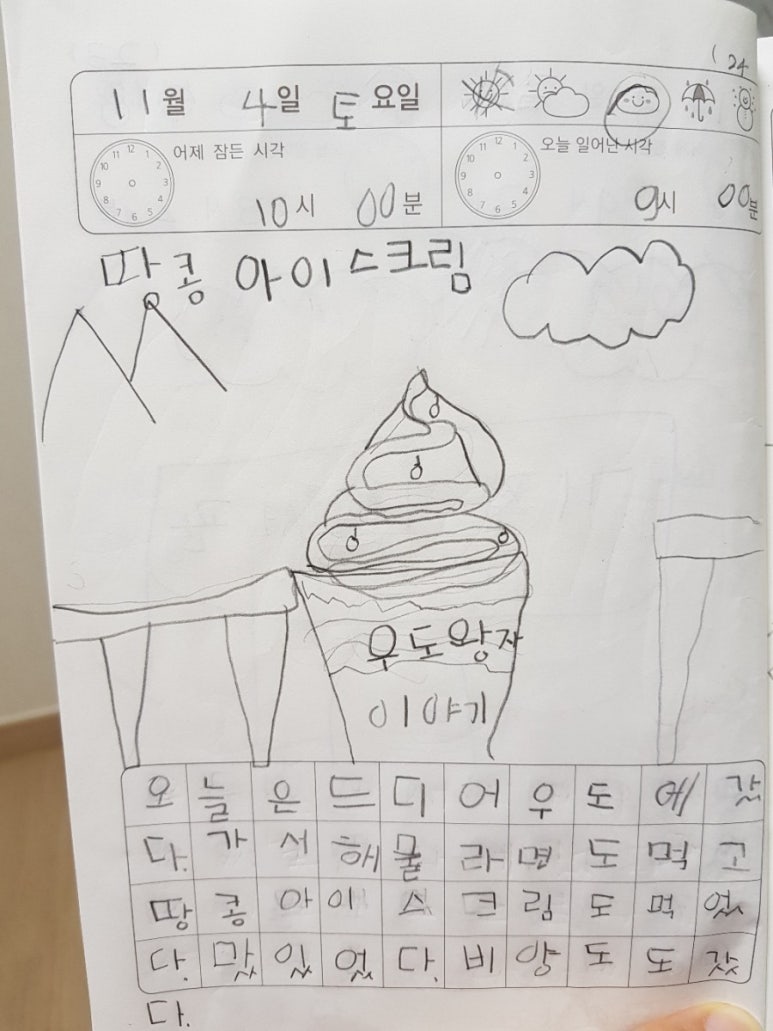 24
11월 4일 토요일
어제 잠든 시각 오늘 일어난 시각
10시 00분 9시 00분
땅콩 아이스크림
우도왕자
이야기
오늘은드디어우도에갔
다.가서해물라면도먹고
땅콩아이스크림도먹었
다.맜있었다.비양도도갔
다.